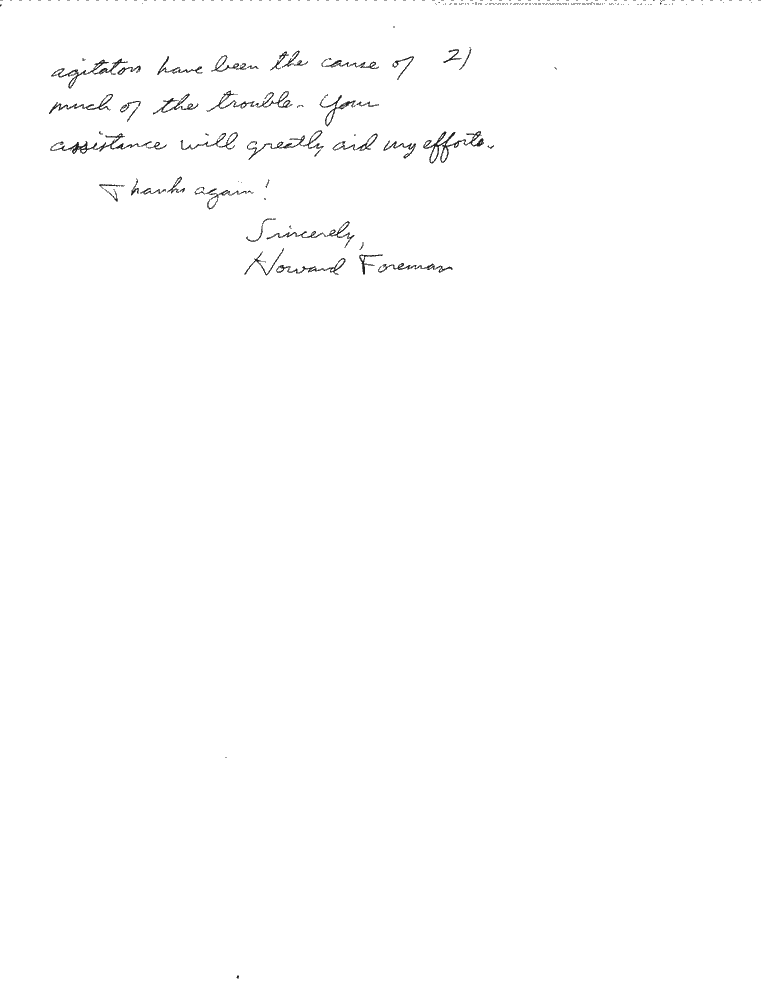 agitators have been the cause of 2)
much of the trouble. Your
assistance will greatly aid my efforts.
Thanks again!
Sincerely,
Howard Foreman